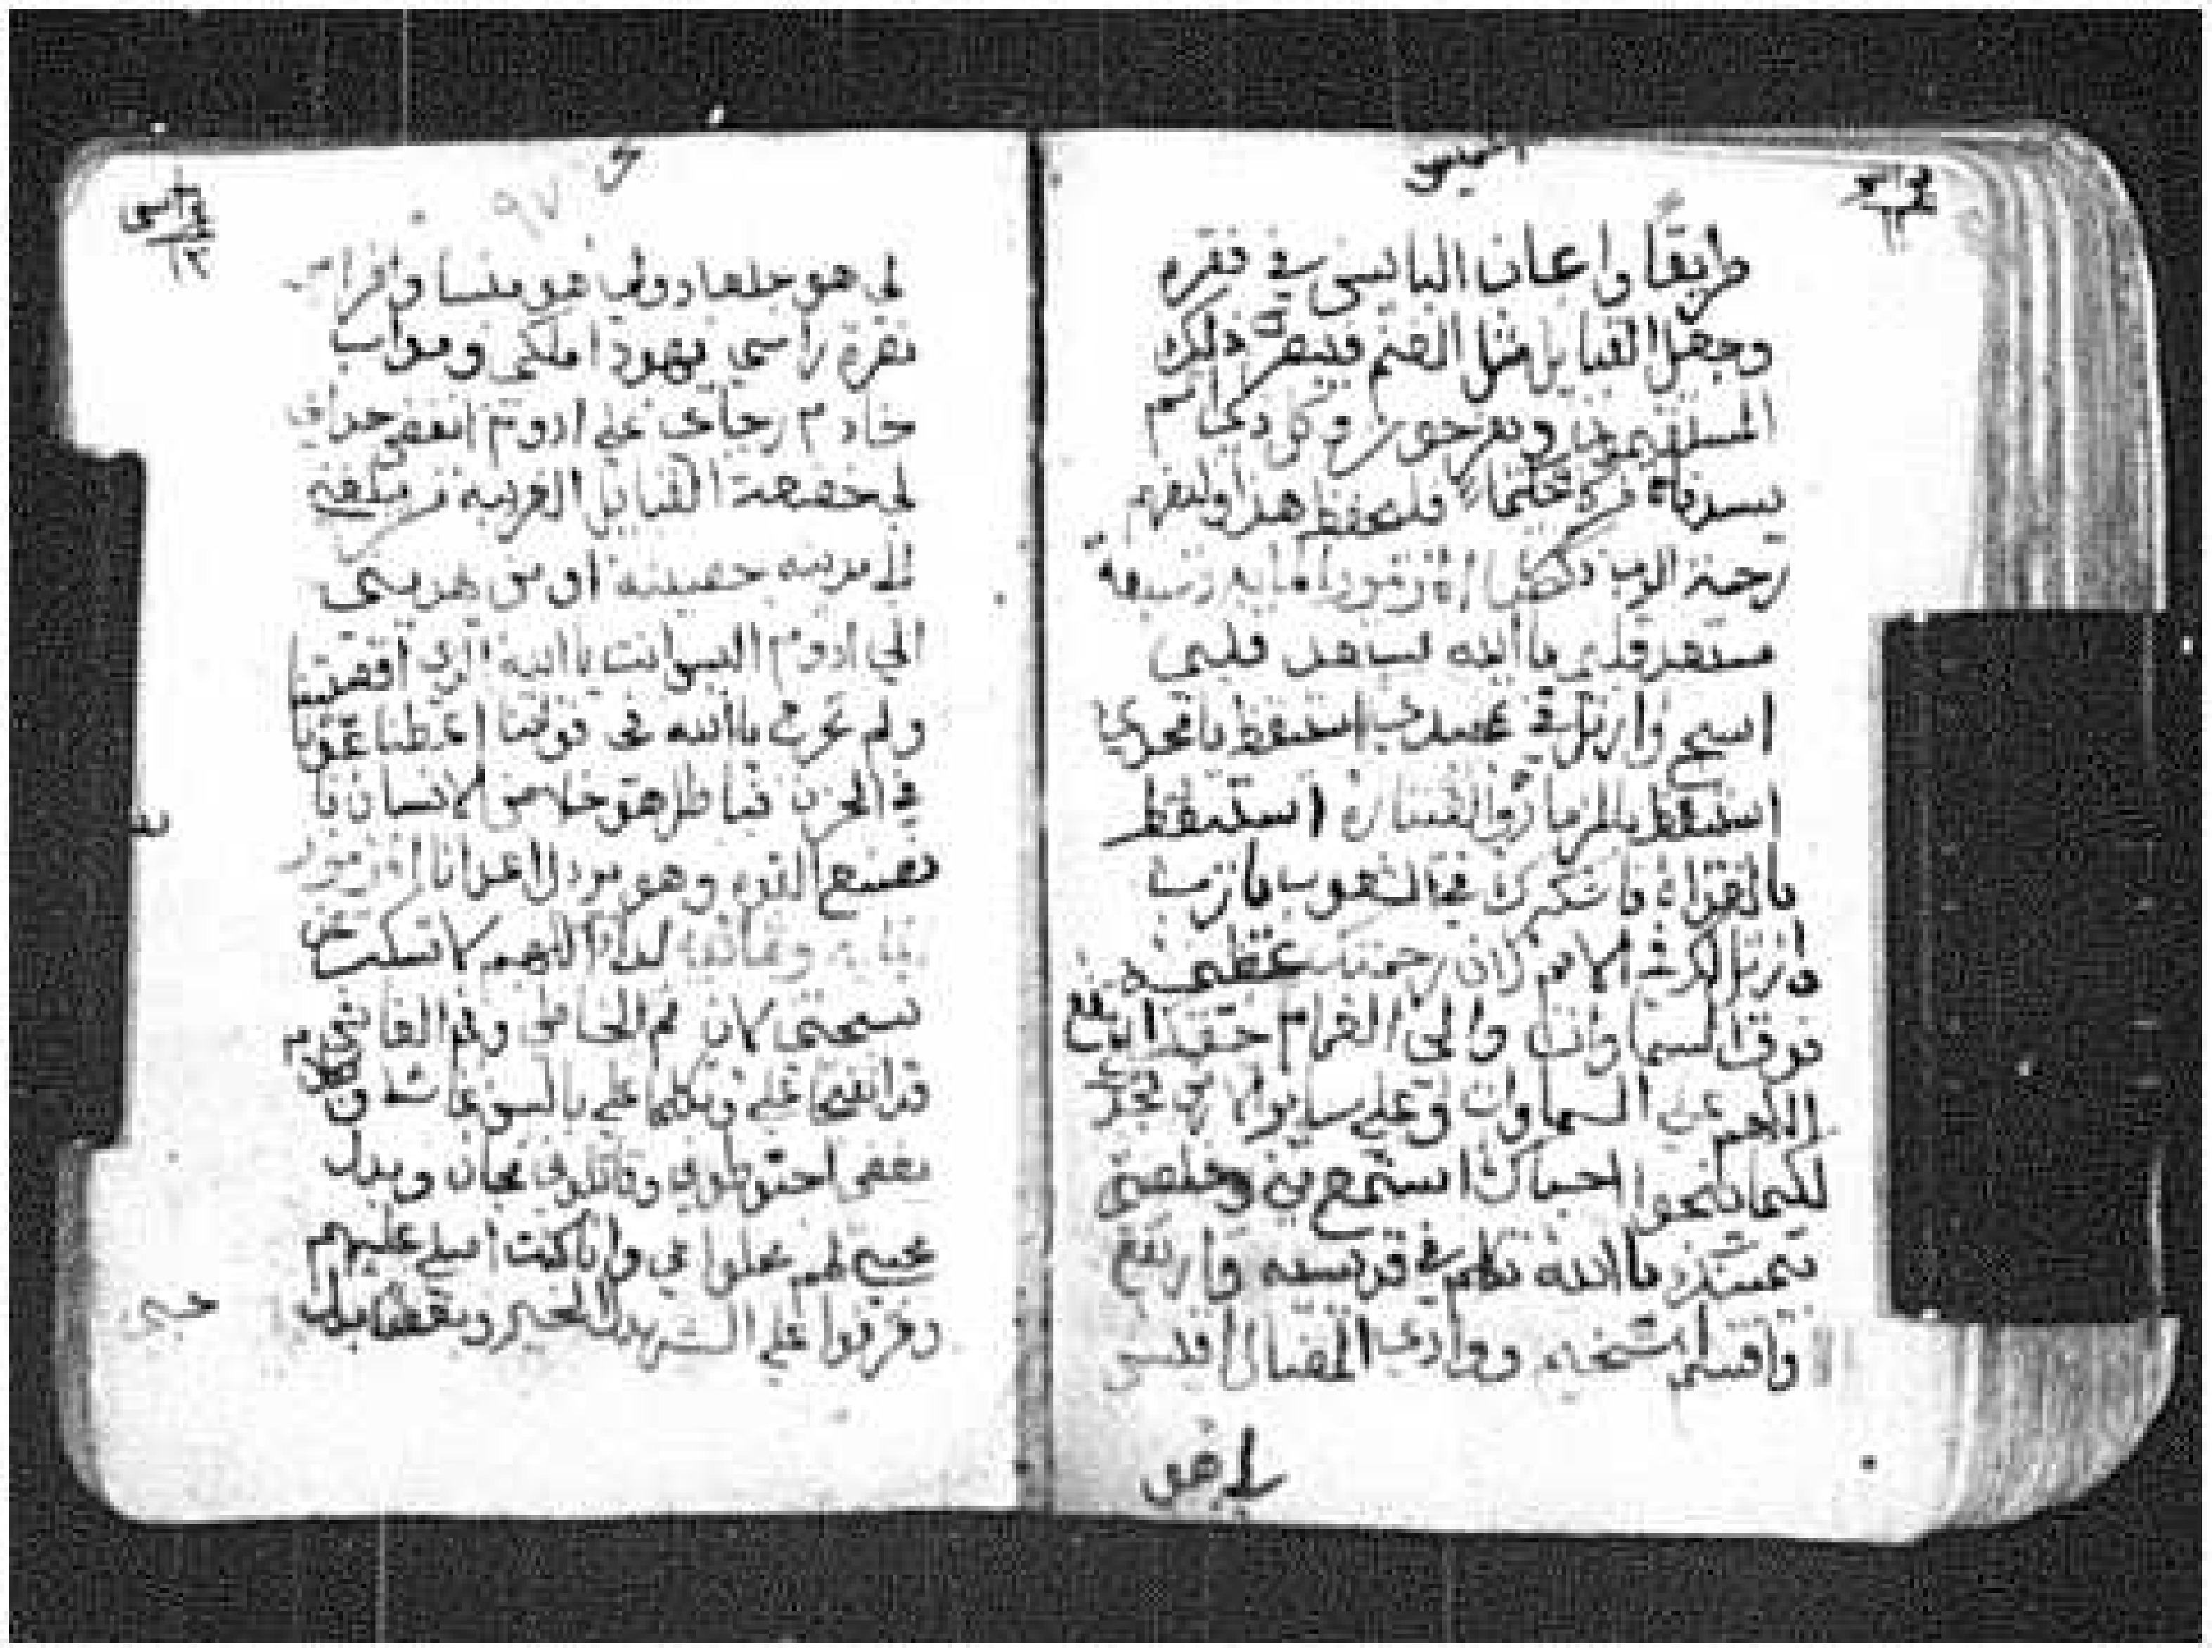 الخميس
طريقًا واعان البائس في فقره
وجعل القبايل مثل الغنم فينظر ذلك
المستقيمون ويفرحون وكل ذي اثم
يسد فاه حكيما فليحفظ هذا وليفهم
رحمة الرب المزمور المايه وسبعة
مستعد قلبي يا الله مستعد قلبي
اسبح وارتل في مجدي استيقظ يا مجدي
استيقظ بالمزمار والقيتاره استيقظ
بالغداه فاشكرك في الشعوب يا رب
وارتل لك في الامم لان رحمتك عظيمة
فوق السماوات والى الغمام حقك ارتفع
اللهم على السماوات وعلى ساير الارض مجدك
لكيما تنجوا احباك استمع مني وخلصني
بيمينك يا الله تكلم في قديسيه وارتفع
واقسم شخيم ووادي المضال اقيس
لي هو
لي هو جلعاد ولي هو منسا وافرام
نصرة راسي يهودا ملكي ومواب
خادم رجاي على ادوم انفض حداي
لي خضعت القبايل الغريبه من يبلغني
الى مدينه حصينه او من يهديني
الى ادوم اليس انت يا الله الذي اقصيتنا
ولم تخرج يا الله في قواتنا اعطنا عونا
في الحزن فباطل هو خلاص الانسان با
نصنع القوه وهو يرذل اعدانا المزمور
مايه وثمانيه لداود اللهم لا تسكت عن
تسبحتي لان فم الخاطي وفم الغاش
قد انفتحا علي وتكلما علي بالسوء غاش وكلام
بغض احتوطوني وقاتلوني مجان وبدل
محبتي لهم محلوا بي وانا كنت اصلي عليهم
وقرروا علي الشر بدل الخير وبغضا بدل
حبي